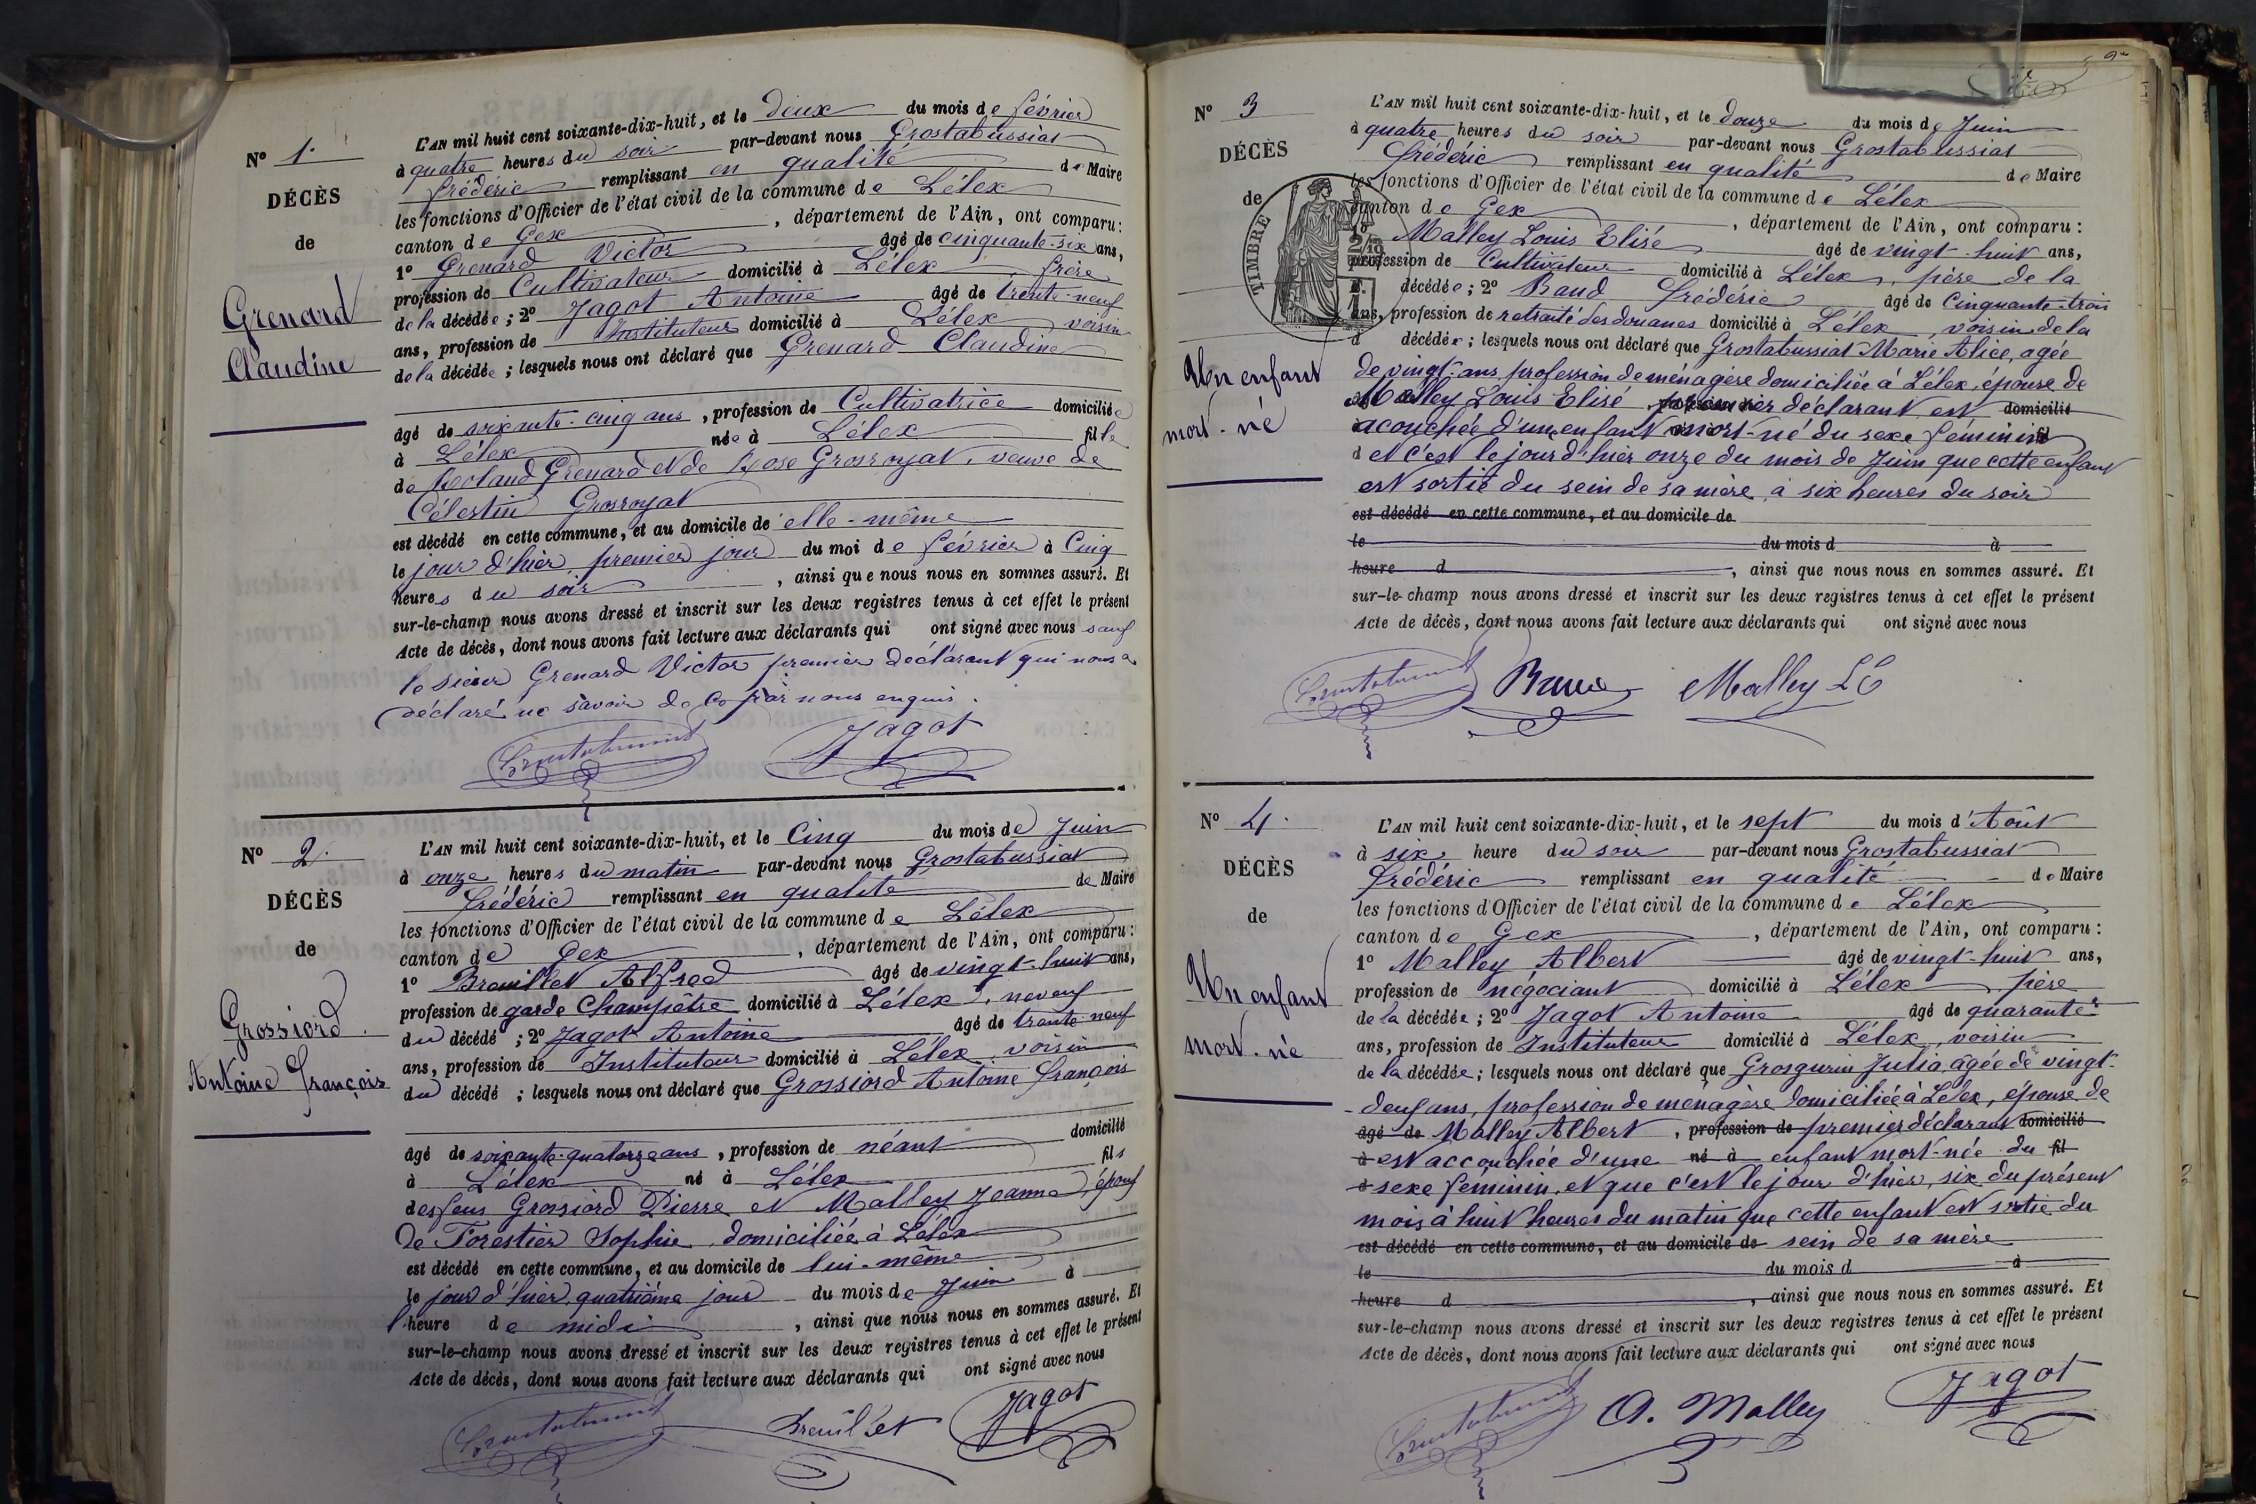 N° 1.
DÉCÈS
de
Grenard
Claudine
L'AN mil huit cent soixante-dix-huit, et le deux du mois de février
à quatre heures du soir par-devant nous Grostabussiat
frédéric remplissant en qualité de Maire
les fonctions d'Officier de l'état civil de la commune de Lélex
canton de Gex, département de l'Ain, ont comparu:
1° Grenard Victor âgé de cinquante-six ans,
profession de Cultivateur domicilié à Lélex frère
de la décédée; 2° Jagot Antoine âgé de trente-neuf
ans, profession de Instituteur domicilié à Lélex voisin
de la décédée; lesquels nous ont déclaré que Grenard Claudine
âgé de soixante-cinq ans, profession de Cultivatrice domiciliée
à Lélex née à Lélex fille
de Roland Grenard et de Rose Grosroyat, veuve de
Célestin Grosroyat
est décédé en cette commune, et au domicile de elle-même
le jour d'hier premier jour du moi de février à Cinq
heures du soir, ainsi que nous nous en sommes assuré. Et
sur-le-champ nous avons dressé et inscrit sur les deux registres tenus à cet effet le présent
Acte de décès, dont nous avons fait lecture aux déclarants qui ont signé avec nous sauf
le sieur Grenard Victor premier déclarant qui nous a
déclaré ne savoir de ce par nous enquis.
Jagot
N° 2.
DÉCÈS
de
Grossiord
Antoine françois
L'AN mil huit cent soixante-dix-huit, et le Cinq du mois de Juin
à onze heures du matin par-devant nous Grostabussiat
frédéric remplissant en qualité de Maire
les fonctions d'Officier de l'état civil de la commune de Lélex
canton de Gex, département de l'Ain, ont comparu:
1° Breuillet Alfred âgé de vingt-huit ans,
profession de garde Champêtre domicilié à Lélex, neveuf
du décédé; 2° Jagot Antoine âgé de trente-neuf
ans, profession de Instituteur domicilié à Lélex voisin
du décédé; lesquels nous ont déclaré que Grossiord Antoine françois
âgé de soixante-quatorze ans, profession de néant domicilié
à Lélex né à Lélex fils
des feus Grossiord Pierre et Malley Jeanne, épouf
de Forestier Sophie, domiciliée à Lélex
est décédé en cette commune, et au domicile de lui-même
le jour d'hier quatrième jour du mois de Juin à
l'heure de midi, ainsi que nous nous en sommes assuré. Et
sur-le-champ nous avons dressé et inscrit sur les deux registres tenus à cet effet le présent
Acte de décès, dont nous avons fait lecture aux déclarants qui ont signé avec nous
Breuillet Jagot
N° 3
DÉCÈS
de
Un enfant
mort-né
TIMBRE
L'AN mil huit cent soixante-dix-huit, et le douze du mois de Juin
à quatre heures du soir par-devant nous Grostabussiat
frédéric remplissant en qualité de Maire
les fonctions d'Officier de l'état civil de la commune de Lélex
canton de Gex, département de l'Ain, ont comparu:
1° Malley Louis Elisé âgé de vingt-huit ans,
profession de Cultivateur domicilié à Lélex, père de la
décédée; 2° Baud frédéric âgé de Cinquante-trois
ans, profession de retraité des douanes domicilié à Lélex, voisin de la
d décédée; lesquels nous ont déclaré que Grostabussiat Marie Alice, agée
de vingt ans, profession de ménagère domiciliée à Lélex, épouse de
Malley Louis Elisé premier déclarant est domicilié
acouchée d'un enfant mort-né du sexe féminin fil
d et c'est le jour d'hier onze du mois de Juin que cette enfant
est sortie du sein de sa mère à six heures du soir
est décédé en cette commune, et au domicile de
le du mois d à
heure d, ainsi que nous nous en sommes assuré. Et
sur-le-champ nous avons dressé et inscrit sur les deux registres tenus à cet effet le présent
Acte de décès, dont nous avons fait lecture aux déclarants qui ont signé avec nous
Baud Malley LE
N° 4.
DÉCÈS
de
Un enfant
mort-né
L'AN mil huit cent soixante-dix-huit, et le sept du mois d'Août
à six heure du soir par-devant nous Grostabussiat
frédéric remplissant en qualité de Maire
les fonctions d'Officier de l'état civil de la commune de Lélex
canton de Gex, département de l'Ain, ont comparu:
1° Malley Albert âgé de vingt-huit ans,
profession de négociant domicilié à Lélex, père
de la décédée; 2° Jagot Antoine âgé de quarante
ans, profession de Instituteur domicilié à Lélex, voisin
de la décédée; lesquels nous ont déclaré que Grosgurin Julia, âgée de vingt-
deuf ans, profession de ménagère domiciliée à Lélex, épouse de
âgé de Malley Albert, profession de premier déclarant domicilié
à est accouchée d'une né à enfant mort-née du fil
d sexe féminin, et que c'est le jour d'hier, six du présent
mois à huit heures du matin que cette enfant est sortie du
est décédé en cette commune, et au domicile de sein de sa mère
le du mois d à
heure d, ainsi que nous nous en sommes assuré. Et
sur-le-champ nous avons dressé et inscrit sur les deux registres tenus à cet effet le présent
Acte de décès, dont nous avons fait lecture aux déclarants qui ont signé avec nous
A. Malley Jagot